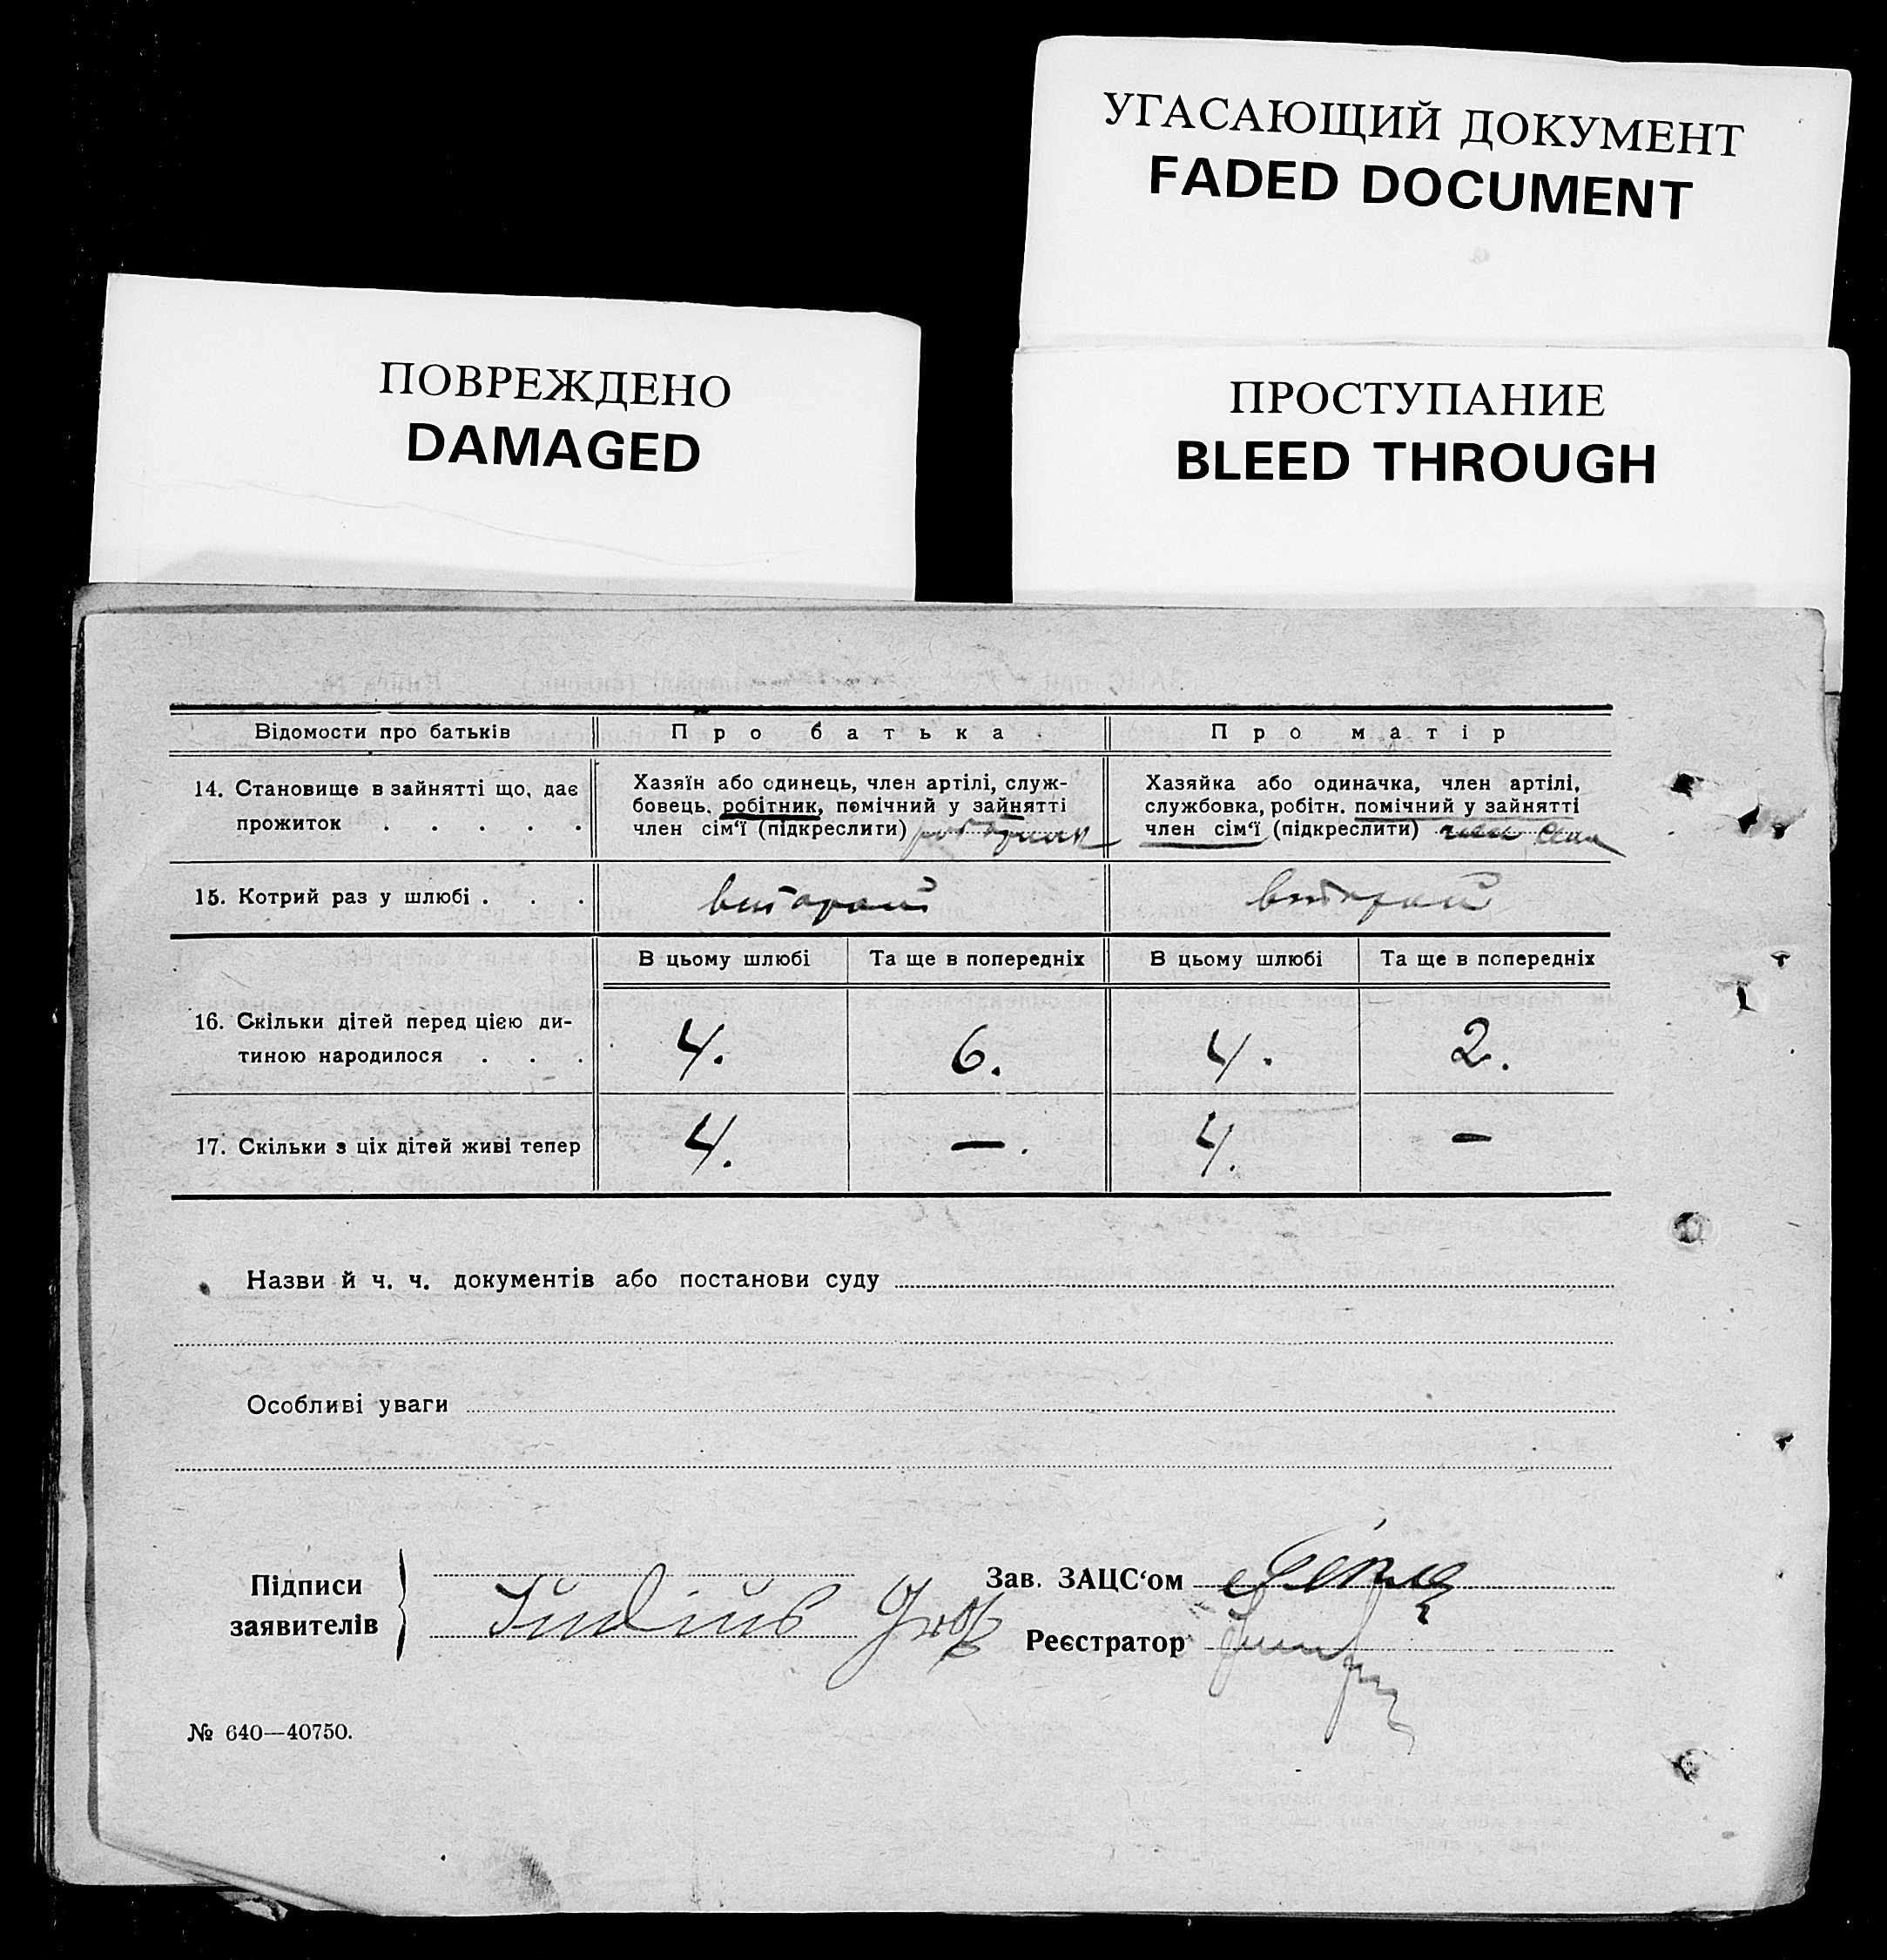 УГАСАЮЩИЙ ДОКУМЕНТ
FADED DOCUMENT
ПОВРЕЖДЕНО
DAMAGED
ПРОСТУПАНИЕ
BLEED THROUGH
Відомости про батьків Про батька Про матір
14. Становище в зайнятті що, дає прожиток . . . . .
Хазяїн або одинець, член артілі, служ-
бовець, робітник, помічний у зайнятті
член сім'ї (підкреслити) робітник
Хазяйка або одиначка, член артілі,
службовка, робітн. помічний у зайнятті
член сім'ї (підкреслити) член сем
15. Котрий раз у шлюбі . . . второй второй
В цьому шлюбі Та ще в попередніх В цьому шлюбі Та ще в попередніх
16. Скільки дітей перед цією ди-
тиною народилося . . . 4. 6. 4. 2.
17. Скільки з ціх дітей живі тепер 4. —. 4. —
Назви й ч. ч. документів або постанови суду
Особливі уваги
Підписи
заявителів
Julius
Зав. ЗАЦС'ом
Реєстратор
№ 640—40750.